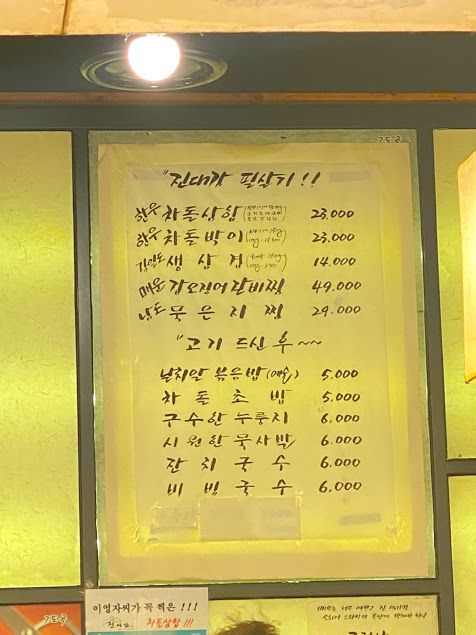 "진대감 필살기!!
한우 차돌삼합 23,000
한우 차돌박이 23,000
생삼겹 14,000
매운 갑오징어갈비찜 49,000
남도 묵은지찜 29,000
"고기 드신 후~~
날치알 볶음밥(예술) 5,000
차돌초밥 5,000
구수한 누룽지 6,000
시원한 묵사발 6,000
잔치국수 6,000
비빔국수 6,000
이영자씨가 꼭 찍은!!!
차돌삼합!!!